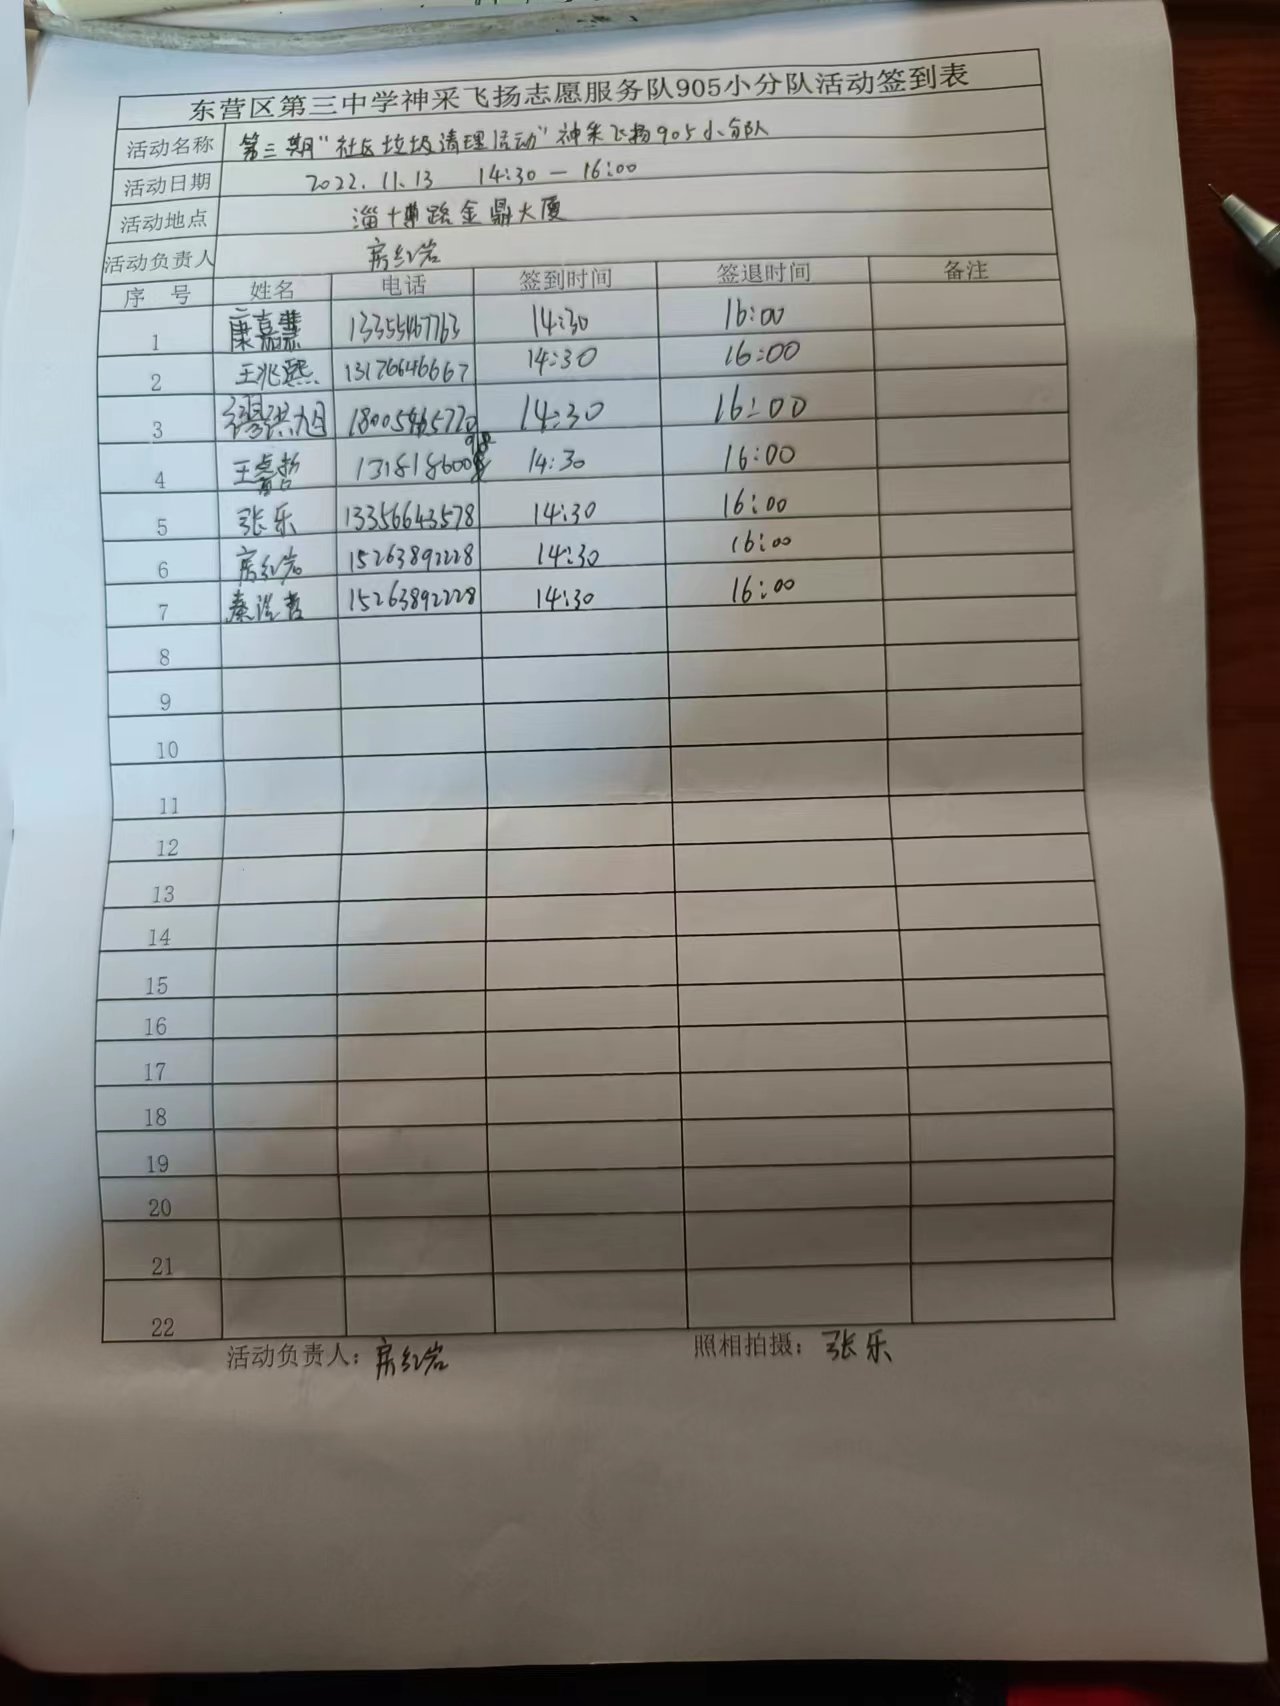 东营区第三中学神采飞扬志愿服务队905小分队活动签到表
活动名称 第三期"社区垃圾清理活动"神采飞扬905小分队
活动日期 2022.11.13 14:30 — 16:00
活动地点 淄博路金鼎大厦
活动负责人 房红岩
序 号 姓名 电话 签到时间 签退时间 备注
1 康嘉慧 13355467763 14:30 16:00
2 王兆熙 13176646667 14:30 16:00
3 14:30 16:00
4 14:30 16:00
5 张乐 13356643578 14:30 16:00
6 房红岩 15263892228 14:30 16:00
7 15263892228 14:30 16:00
8
9
10
11
12
13
14
15
16
17
18
19
20
21
22
活动负责人: 房红岩 照相拍摄: 张乐